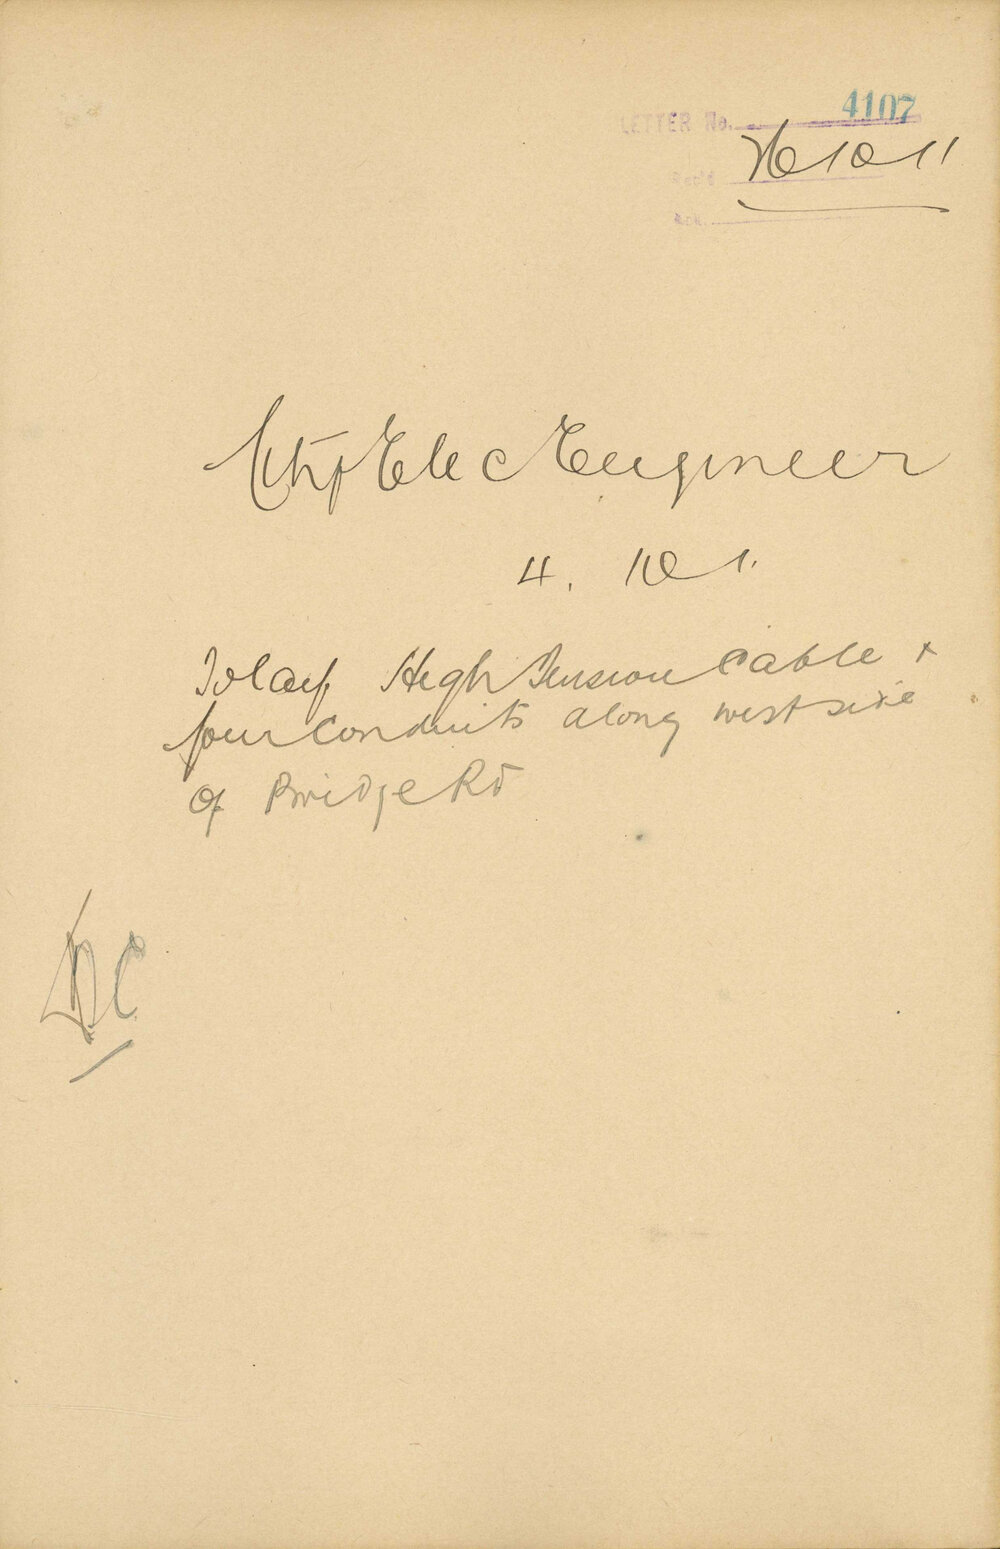 LETTER No. 4107
Rec'd 10 11
Ack.
City Elec Engineer
4. 10. 1.
To lay High Tension Cable +
four Conduits along west side
of Bridge Rd